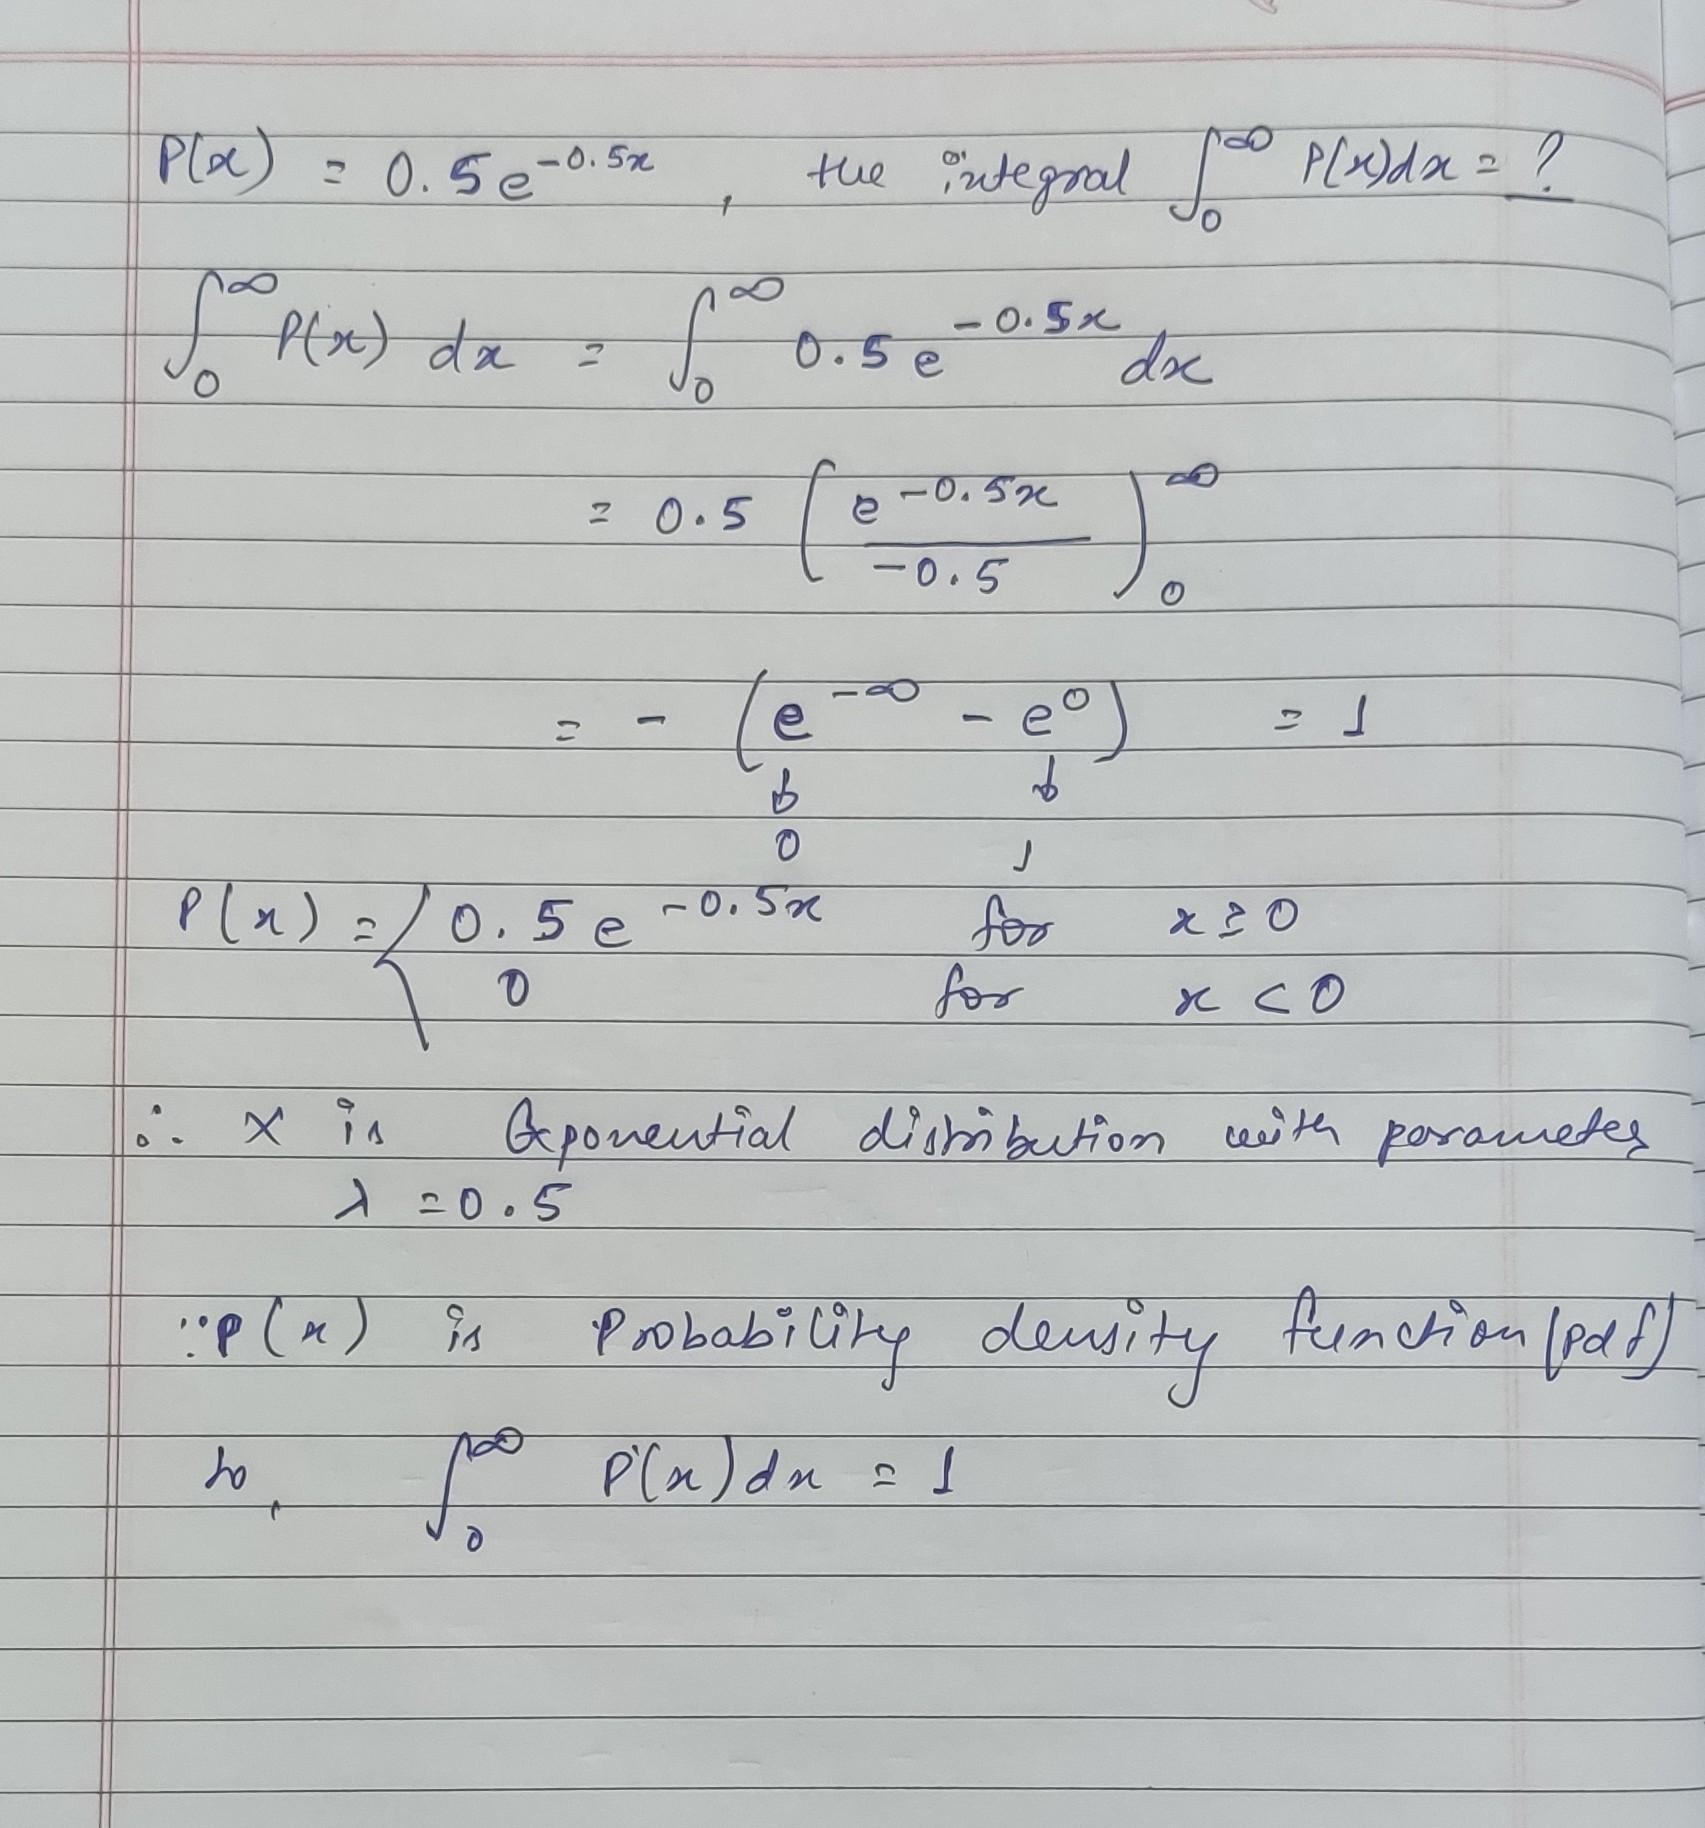 P(x) = 0.5e^{-0.5x}, the integral ∫_0^∞ P(x)dx = ?
∫_0^∞ P(x) dx = ∫_0^∞ 0.5 e^{-0.5x} dx
= 0.5 (e^{-0.5x} / -0.5)_0^∞
= - (e^{-∞} - e^0) = 1
↓ ↓
0 1
P(x) = { 0.5 e^{-0.5x} for x ≥ 0
0 for x < 0
∴ X is Exponential distribution with parameter
λ = 0.5
∵ P(x) is Probability density function (pdf)
so, ∫_0^∞ P(x) dx = 1